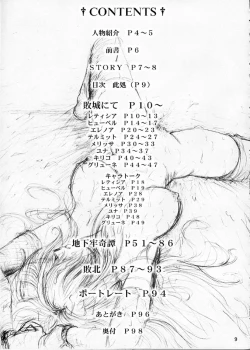 † CONTENTS †
人物紹介 P4～5
前書 P6
STORY P7～8
目次 此処(P9)
敗城にて P10～
レティシア P10～13
ヒューベル P14～17
エレノア P20～23
テルミット P24～27
メリッサ P30～33
ユナ P34～37
キリコ P40～43
グリューネ P44～47
キャラトーク
レティシア P18
ヒューベル P19
エレノア P28
テルミット P29
メリッサ P38
ユナ P39
キリコ P48
グリューネ P49
地下牢奇譚 P51～86
敗北 P87～93
ポートレート P94
あとがき P96
奥付 P98
9